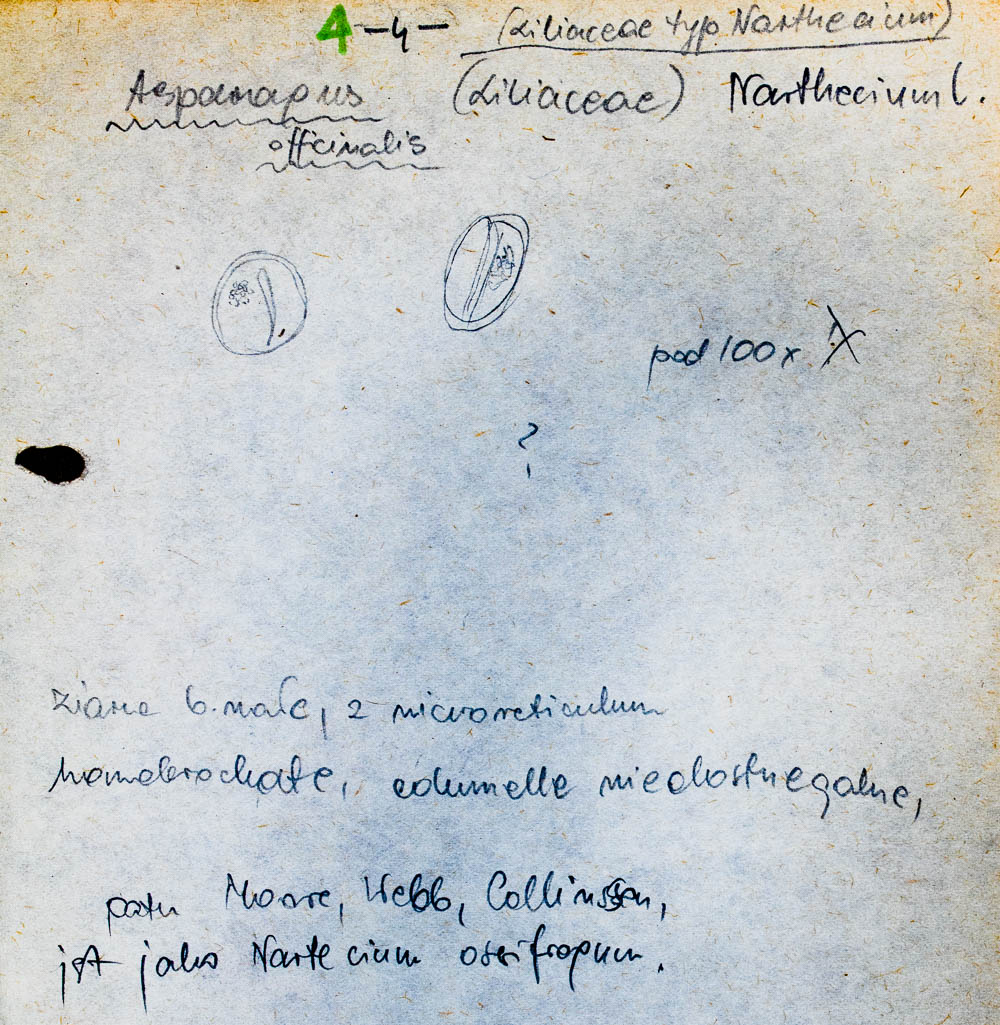 4 – 4 – (Liliaceae typ Narthecium)
Asparagus (Liliaceae) Narthecium l.
officinalis
pod 100x
?
ziarna b. małe, z microreticulum
homobrochate, columelle niedostrzegalne,
patrz Moore, Webb, Collinson,
jest jako Nartecium ossifragum.